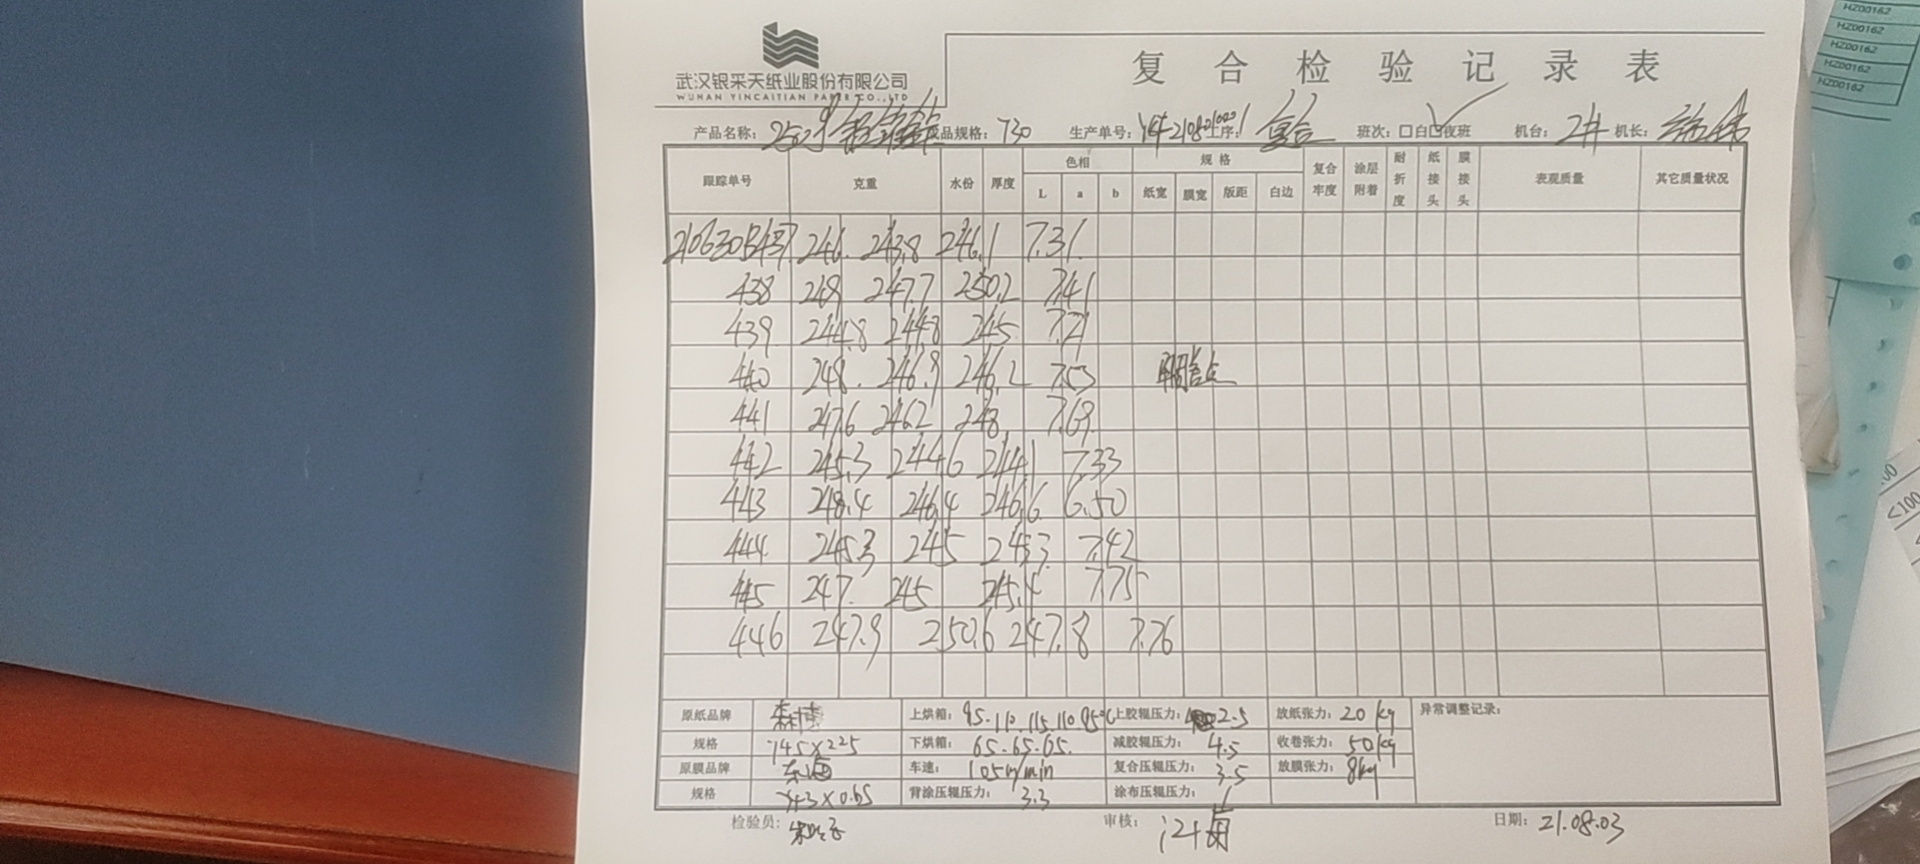 武汉银采天纸业股份有限公司
WUHAN YINCAITIAN PAPER CO.,LTD
复合检验记录表
产品名称: 产品规格: 730 生产单号: 工序: 复合 班次: 口白口夜班 机台: 2# 机长:
跟踪单号 克重 水份 厚度 色相 规格 复合牢度 涂层附着 耐折度 纸接头 膜接头 表观质量 其它质量状况
L a b 纸宽 膜宽 版距 白边
210630B437 246. 243.8 246.1 7.31.
438 248 247.7 250.2 7.41
439 244.8 244.8 245 7.21
440 248. 246.9 246.2 7.53
441 247.6 246.2 248. 7.69.
442 245.3 244.6 244.1 7.33
443 248.4 246.4 246.6. 6.50
444 245.3 245 245.3. 7.42
445 247. 245 245.4 7.75
446 247.9 250.6 247.8 7.76
原纸品牌 上烘箱: 95.110.115.110.95℃ 上胶辊压力: 2.5 放纸张力: 20kg 异常调整记录:
规格 745×225 下烘箱: 65.65.65. 减胶辊压力: 4.5 收卷张力: 50kg
原膜品牌 车速: 105m/min 复合压辊压力: 3.5 放膜张力: 8kg
规格 743×0.65 背涂压辊压力: 3.3 涂布压辊压力:
检验员: 审核: 日期: 21.08.03
HZ00162
HZ00162
HZ00162
HZ00162
HZ00162